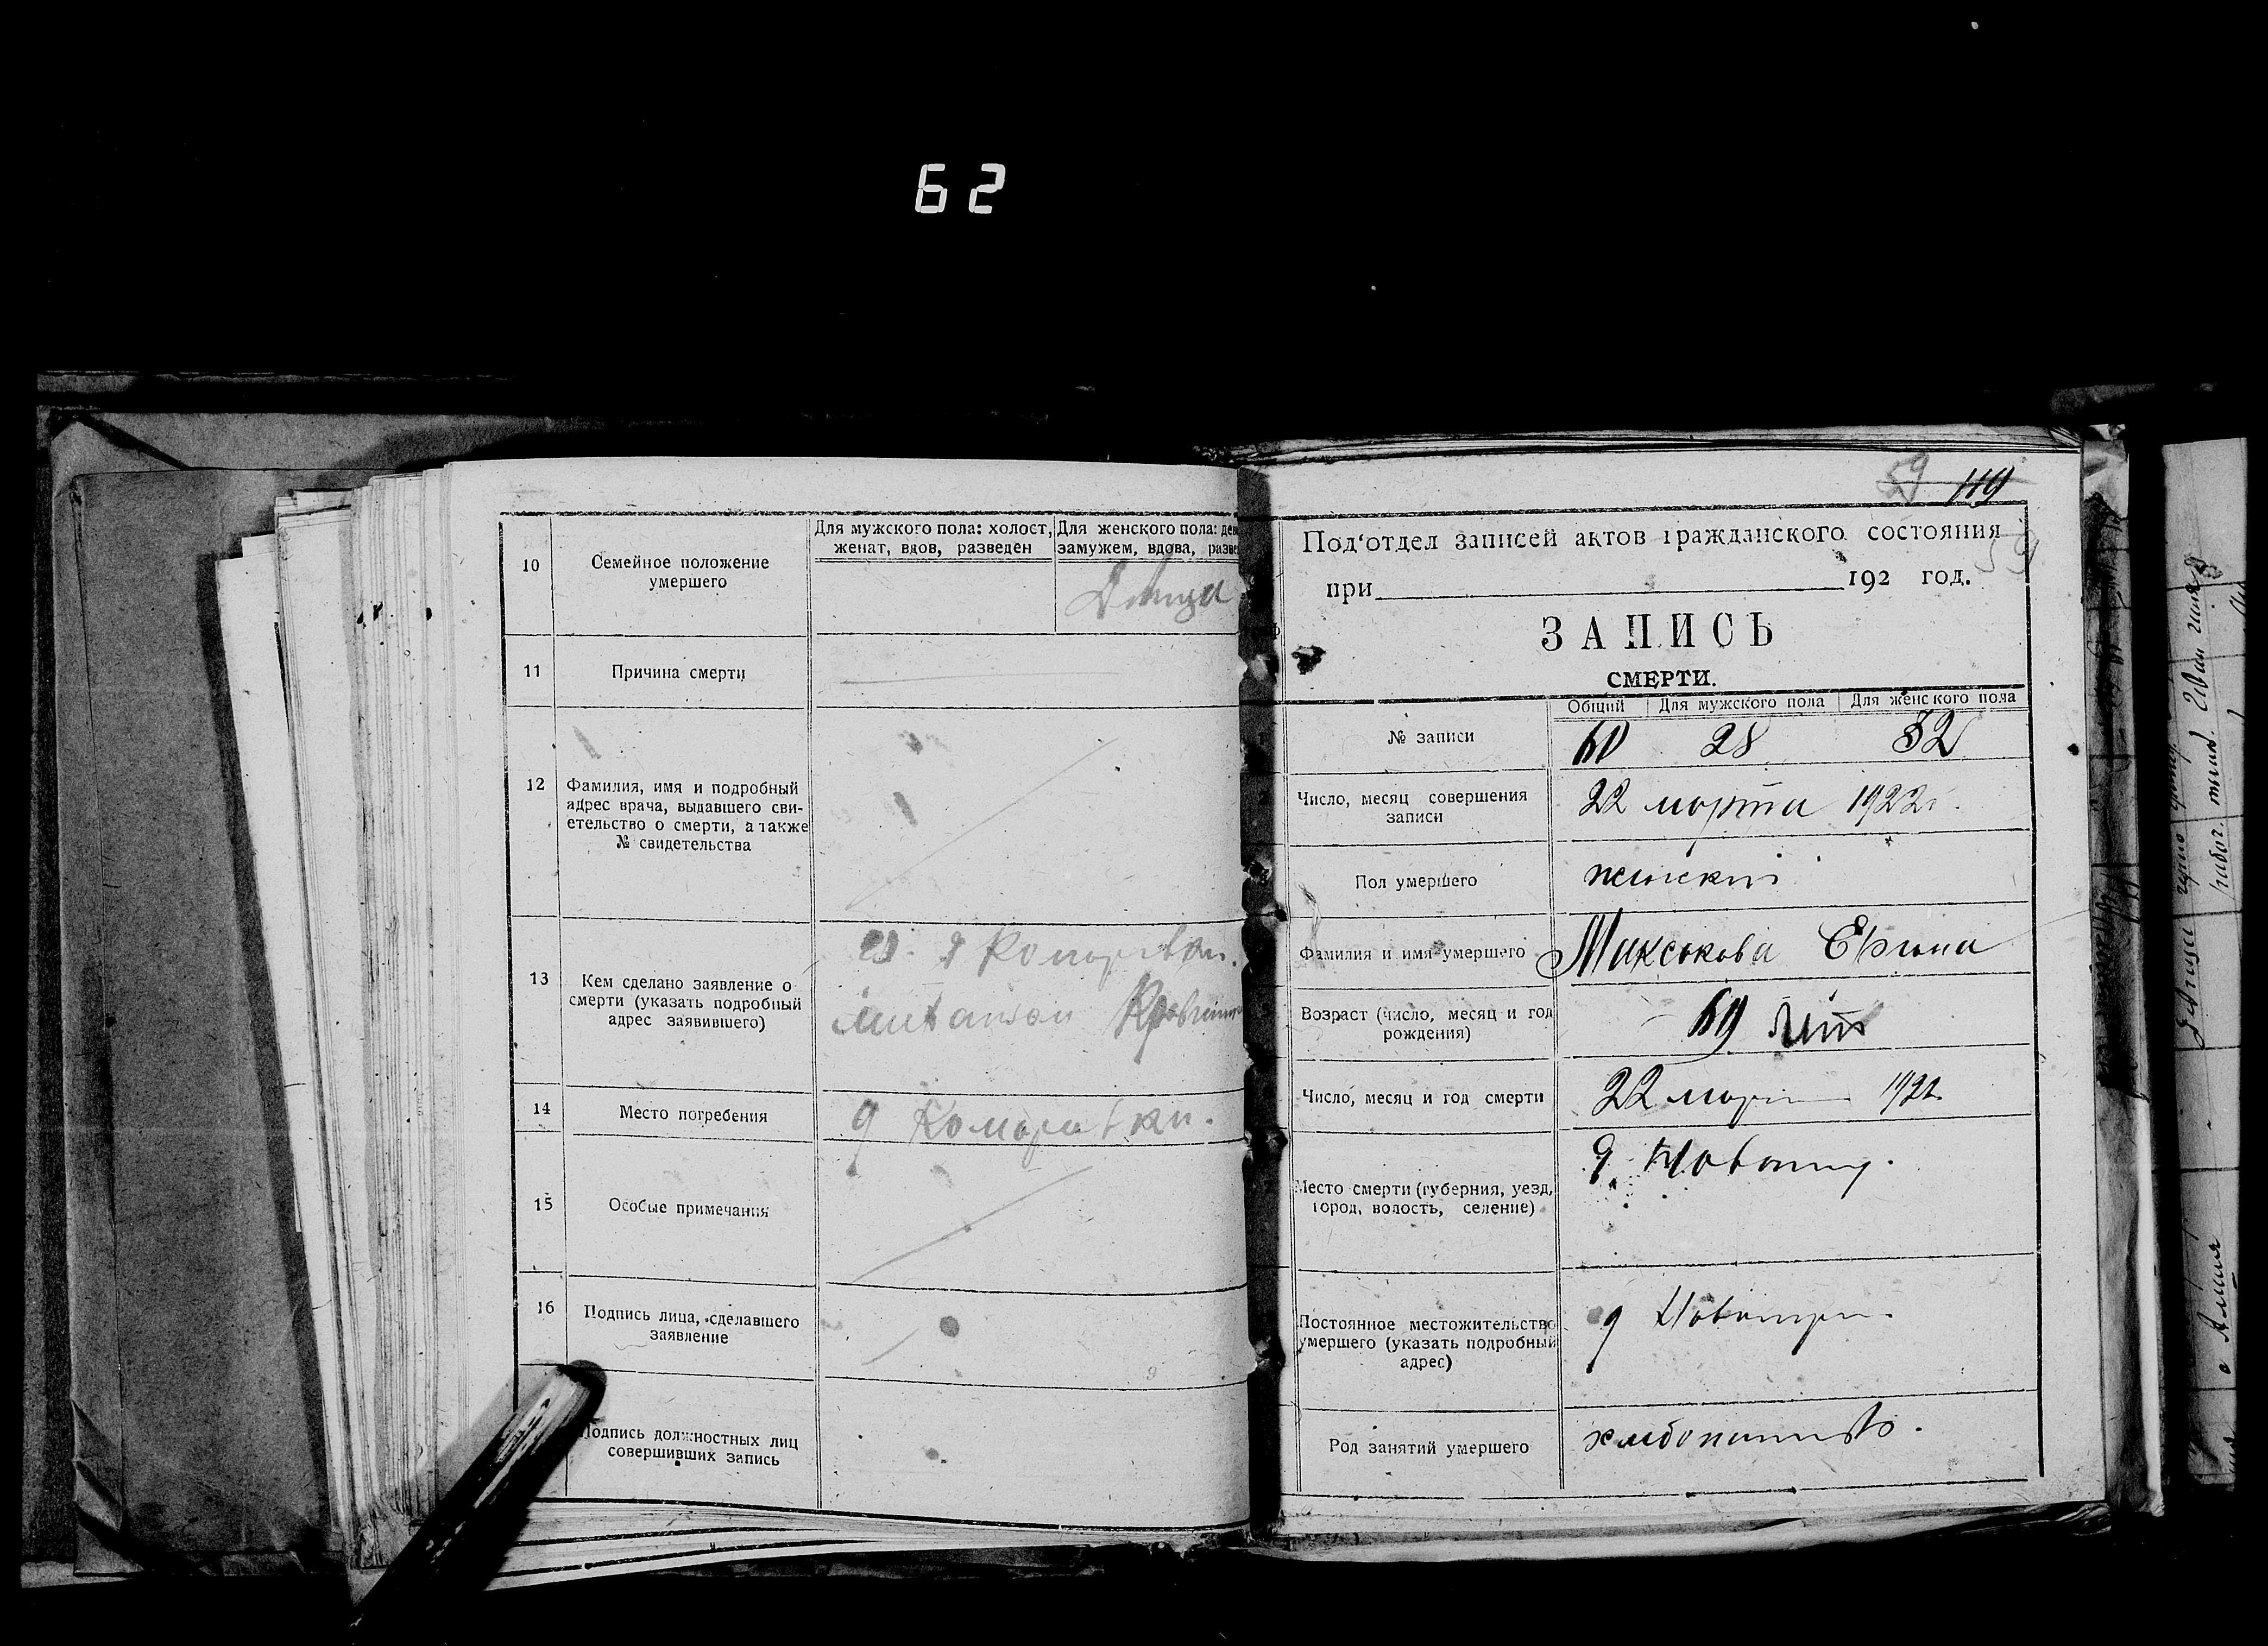 62
10
Семейное положение
умершего
Для мужского пола: холост,
женат, вдов, разведен
Для женского пола: дев
замужем, вдова, разве
Девица
11
Причина смерти
12
Фамилия, имя и подробный
адрес врача, выдавшего сви-
етельство о смерти, а также
№ свидетельства
13
Кем сделано заявление о
смерти (указать подробный
адрес заявившего)
14
Место погребения
д Комаровки.
15
Особые примечания
16
Подпись лица, сделавшего
заявление
Подпись должностных лиц
совершивших запись
59 119
Под'отдел записей актов гражданского состояния
59
при 192 год.
ЗАПИСЬ
СМЕРТИ.
Общий Для мужского пола Для женского пола
№ записи
60 28 32
Число, месяц совершения
записи
22 марта 1922 г.
Пол умершего
женский
Фамилия и имя умершего
Максюкова
Возраст (число, месяц и год
рождения)
69 лет
Число, месяц и год смерти
22 мар 1922
Место смерти (губерния, уезд,
город, волость, селение)
д.
Постоянное местожительство
умершего (указать подробный
адрес)
д
Род занятий умершего
хлебопашество.